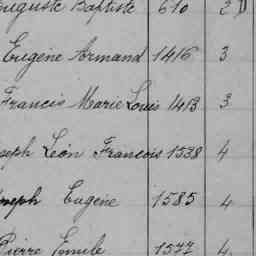 Auguste Baptiste 610 2 D
Eugène Armand 1416 3
Francis Marie Louis 1413 3
Joseph Léon Francois 1538 4
Joseph Eugène 1585 4
Pierre Emile 1577 4